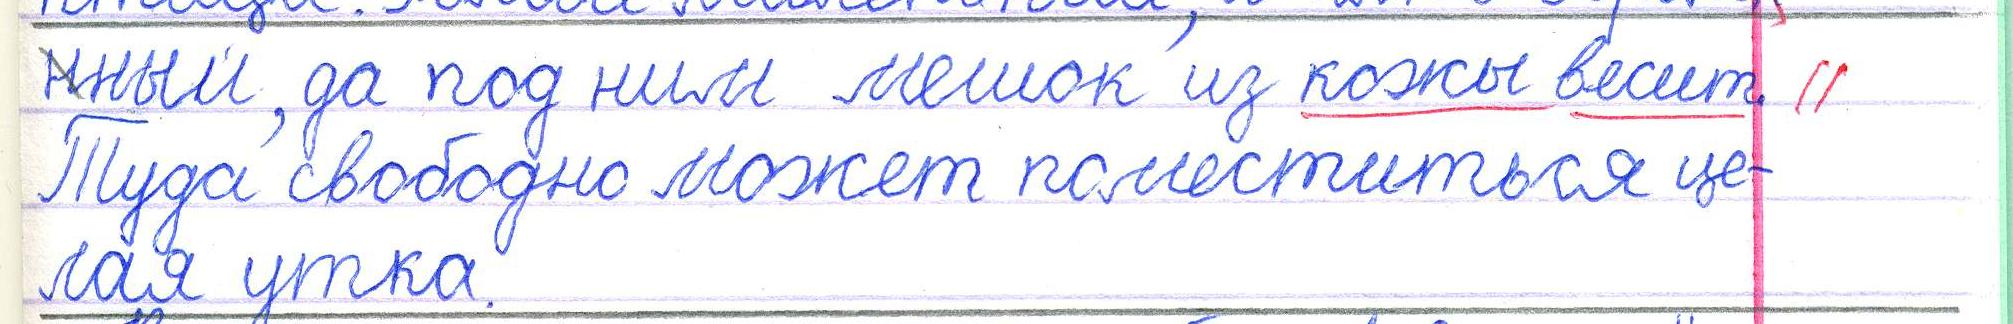 нный, да под ним мешок из кожы весит.
Туда свободно может поместиться це-
лая утка.